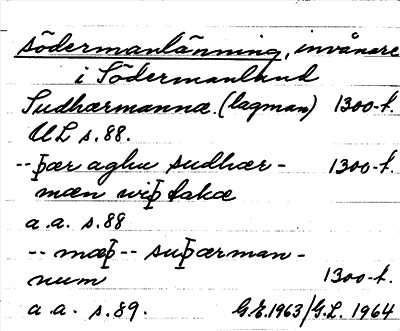 södermanlänning, invånare
i Södermanland
Sudhærmannæ. (lagman) 1300-t.
UL s. 88.
-- þær aghu sudhær- 1300-t.
mæn wiþ takæ
a. a. s. 88
-- mæþ -- suþærman-
num 1300-t.
a. a. s. 89. G.E. 1963/G.L. 1964